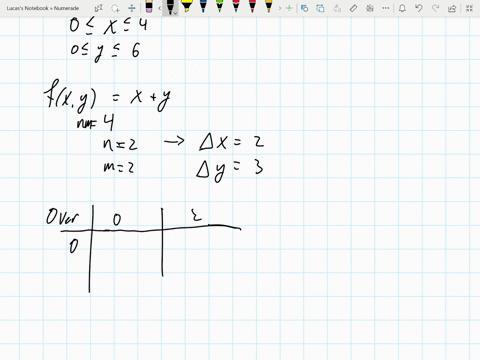 Lucas's Notebook » Numerade
0 ≤ x ≤ 4
0 ≤ y ≤ 6
f(x,y) = x + y
nm=4
n=2 → Δx = 2
m=2 Δy = 3
Over 0 2
0